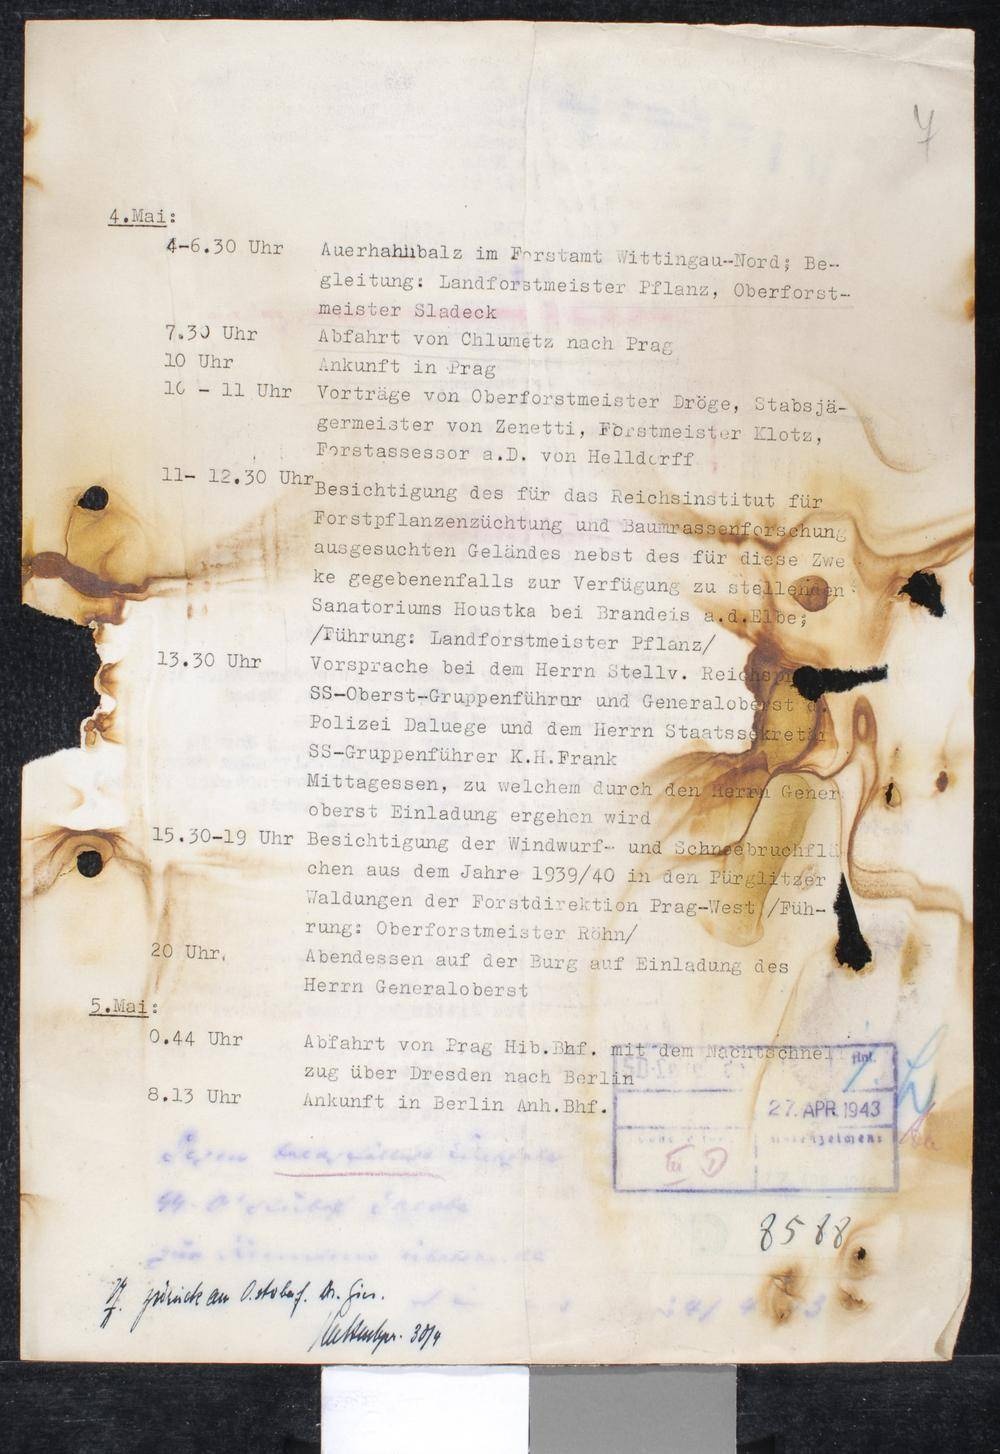 7
4.Mai:
4-6.30 Uhr Auerhahnbalz im Forstamt Wittingau-Nord; Be-
gleitung: Landforstmeister Pflanz, Oberforst-
meister Sladeck
7.30 Uhr Abfahrt von Chlumetz nach Prag
10 Uhr Ankunft in Prag
10 - 11 Uhr Vorträge von Oberforstmeister Dröge, Stabsjä-
germeister von Zenetti, Forstmeister Klotz,
Forstassessor a.D. von Helldorff
11- 12.30 Uhr Besichtigung des für das Reichsinstitut für
Forstpflanzenzüchtung und Baumrassenforschung
ausgesuchten Geländes nebst des für diese Zwe
ke gegebenenfalls zur Verfügung zu stellenden
Sanatoriums Houstka bei Brandeis a.d.Elbe;
/Führung: Landforstmeister Pflanz/
13.30 Uhr Vorsprache bei dem Herrn Stellv. Reichspr
SS-Oberst-Gruppenführer und Generaloberst d.
Polizei Daluege und dem Herrn Staatssekretär
SS-Gruppenführer K.H.Frank
Mittagessen, zu welchem durch den Herrn Gener
oberst Einladung ergehen wird
15.30-19 Uhr Besichtigung der Windwurf- und Schneebruchflä
chen aus dem Jahre 1939/40 in den Pürglitzer
Waldungen der Forstdirektion Prag-West /Füh-
rung: Oberforstmeister Röhn/
20 Uhr. Abendessen auf der Burg auf Einladung des
Herrn Generaloberst
5.Mai:
0.44 Uhr Abfahrt von Prag Hib.Bhf. mit dem Nachtschnell
zug über Dresden nach Berlin
8.13 Uhr Ankunft in Berlin Anh.Bhf.
Anl.
27. APR. 1943
8588
zurück an
30/4